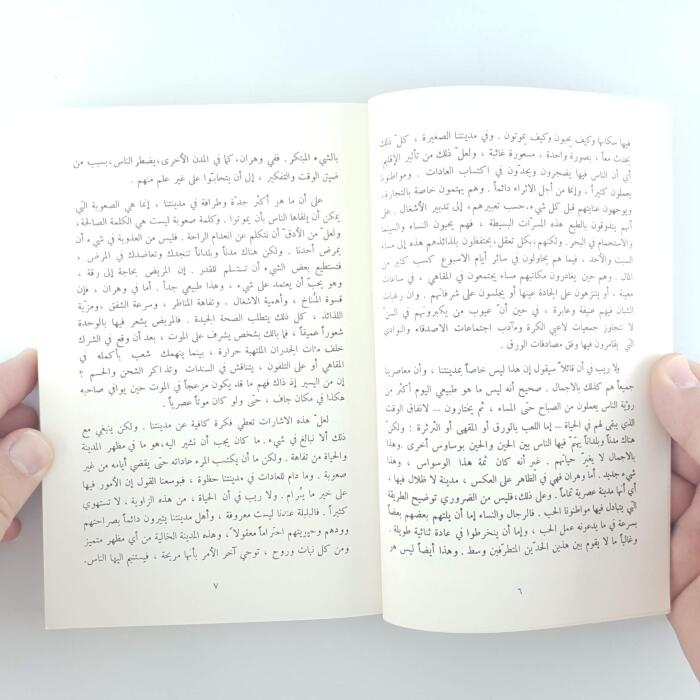 فيها سكانها وكيف يحبون وكيف يموتون . وفي مدينتنا الصغيرة ، كلّ ذلك
يحدث معاً ، بصورة واحدة ، مسعورة غائبة ، ولعلّ ذلك من تأثير الإقليم .
أي أن الناس فيها يضجرون ويجدّون في اكتساب العادات . ومواطنونا
يعملون كثيراً ، وإنما من أجل الاثراء دائماً . وهم يهتمون خاصة بالتجارة،
ويوجهون عنايتهم قبل كل شيء،حسب تعبيرهم، إلى تدبير الأشغال . على
أنهم يتذوقون بالطبع هذه المسرّات البسيطة ، فهم يحبون النساء والسينما
والاستحمام في البحر. ولكنهم،بكل تعقل،يحتفظون بلذائذهم هذه إلى مساء
السبت والأحد ، فيما هم يحاولون في سائر أيام الاسبوع كسب كثير من
المال . وهم حين يغادرون مكاتبهم مساء يجتمعون في المقاهي ، في ساعات
معينة . أو يتنزهون على الجادة عينها أو يجلسون على شرفاتهم . وان رغبات
الشبان فيهم عنيفة وعابرة ، في حين أنّ عيوب من يكبرونهم في السنّ
لا تتجاوز جمعيات لاعبي الكرة ومآدب اجتماعات الاصدقاء والنوادي
التي يقامرون فيها وفق مصادفات الورق .
بلا ريب في أن قائلاً سيقول إن هذا ليس خاصاً بمدينتنا ، وأن معاصرينا
جميعاً هم كذلك بالاجمال . صحيح أنه ليس ما هو طبيعي اليوم أكثر من
رؤية الناس يعملون من الصباح حتى المساء ، ثم يختارون — لانفاق الوقت
الذي يبقى لهم في الحياة — إما اللعب بالورق أو المقهى أو الثرثرة : ولكنّ
هناك مدناً وبلداناً يهمّ فيها الناس بين الحين والحين بوساوس أخرى .وهذا
بالاجمال لا يغيرّ حياتهم . غير أنه كان ثمة هذا الوسواس ، وهذا
شيء جديد . أما وهران فهي في الظاهر على العكس ، مدينة لا ظلال فيها ،
أي أنها مدينة عصرية تماماً . وعلى ذلك،فليس من الضروري توضيح الطريقة
التي يتبادل فيها مواطنونا الحب . فالرجال والنساء إما أن يلتهم بعضهم بعضاً
بسرعة في ما يدعونه عمل الحب ، وإما أن ينخرطوا في عادة ثنائية طويلة .
وغالباً ما لا يقوم بين هذين الحدّين المتطرفين وسط . وهذا أيضاً ليس هو
٦
بالشيء المبتكر . ففي وهران،كما في المدن الأخرى،يضطر الناس،بسبب من
ضيق الوقت والتفكير ، إلى أن يتحابّوا على غير علم منهم .
على أن ما هو أكثر جدّة وطرافة في مدينتنا ، إنما هي الصعوبة التي
يمكن أن يلقاها الناس بأن يموتوا . وكلمة صعوبة ليست هي الكلمة الصالحة،
ولعلّ من الأدقّ أن نتكلم عن انعدام الراحة . فليس من العذوبة في شيء أن
يمرض أحدنا . ولكن هناك مدناً وبلداناً تنجدك وتعاضدك في المرض ،
فتستطيع بعض الشيء أن تستسلم للقدر . إن المريض بحاجة إلى رقة ،
وهو يحبّ أن يعتمد على شيء ، وهذا طبيعي جداً . أما في وهران ، فإن
قسوة المُناخ ، وأهمية الاشغال ، وتفاهة المناظر ، وسرعة الشفق ،ومزيّة
اللذائذ ، كل ذلك يتطلب الصحة الجيدة . فالمريض يشعر فيها بالوحدة
شعوراً عميقاً ، فما بالك بشخص يشرف على الموت ، بعد أن وقع في الشرك
خلف مئات الجدران الملتهبة حرارة ، بينما ينهمك شعب بأكمله في
المقاهي أو على التلفون ، يتناقش في السندات وتذاكر الشحن والحسم ؟
إن من اليسير إذ ذاك فهم ما قد يكون مزعجاً في الموت حين يوافي صاحبه
هكذا في مكان جاف ، حتى ولو كان موتاً عصرياً .
لعلّ هذه الاشارات تعطي فكرة كافية عن مدينتنا . ولكن ينبغي مع
ذلك ألا نبالغ في شيء .ما كان يجب أن نشير اليه،هو ما في مظهر المدينة
والحياة من تفاهة . ولكن ما أن يكتسب المرء عاداته حتى يقضي أيامه من غير
صعوبة . وما دام للعادات في مدينتنا حظوة ، فبوسعنا القول إن الأمور فيها
على خير ما يُرام . ولا ريب في أن الحياة ، من هذه الزاوية ، لا تستهوي
كثيراً . فالبلبلة عندنا ليست معروفة ، وأهل مدينتنا يثيرون دائماً بصراحتهم
وودهم وحيويتهم احتراماً معقولاً ، وهذه المدينة الخالية من أي مظهر متميز
ومن كل نبات وروح ، توحي آخر الأمر بأنها مريحة ، فيستنيم اليها الناس.
٧